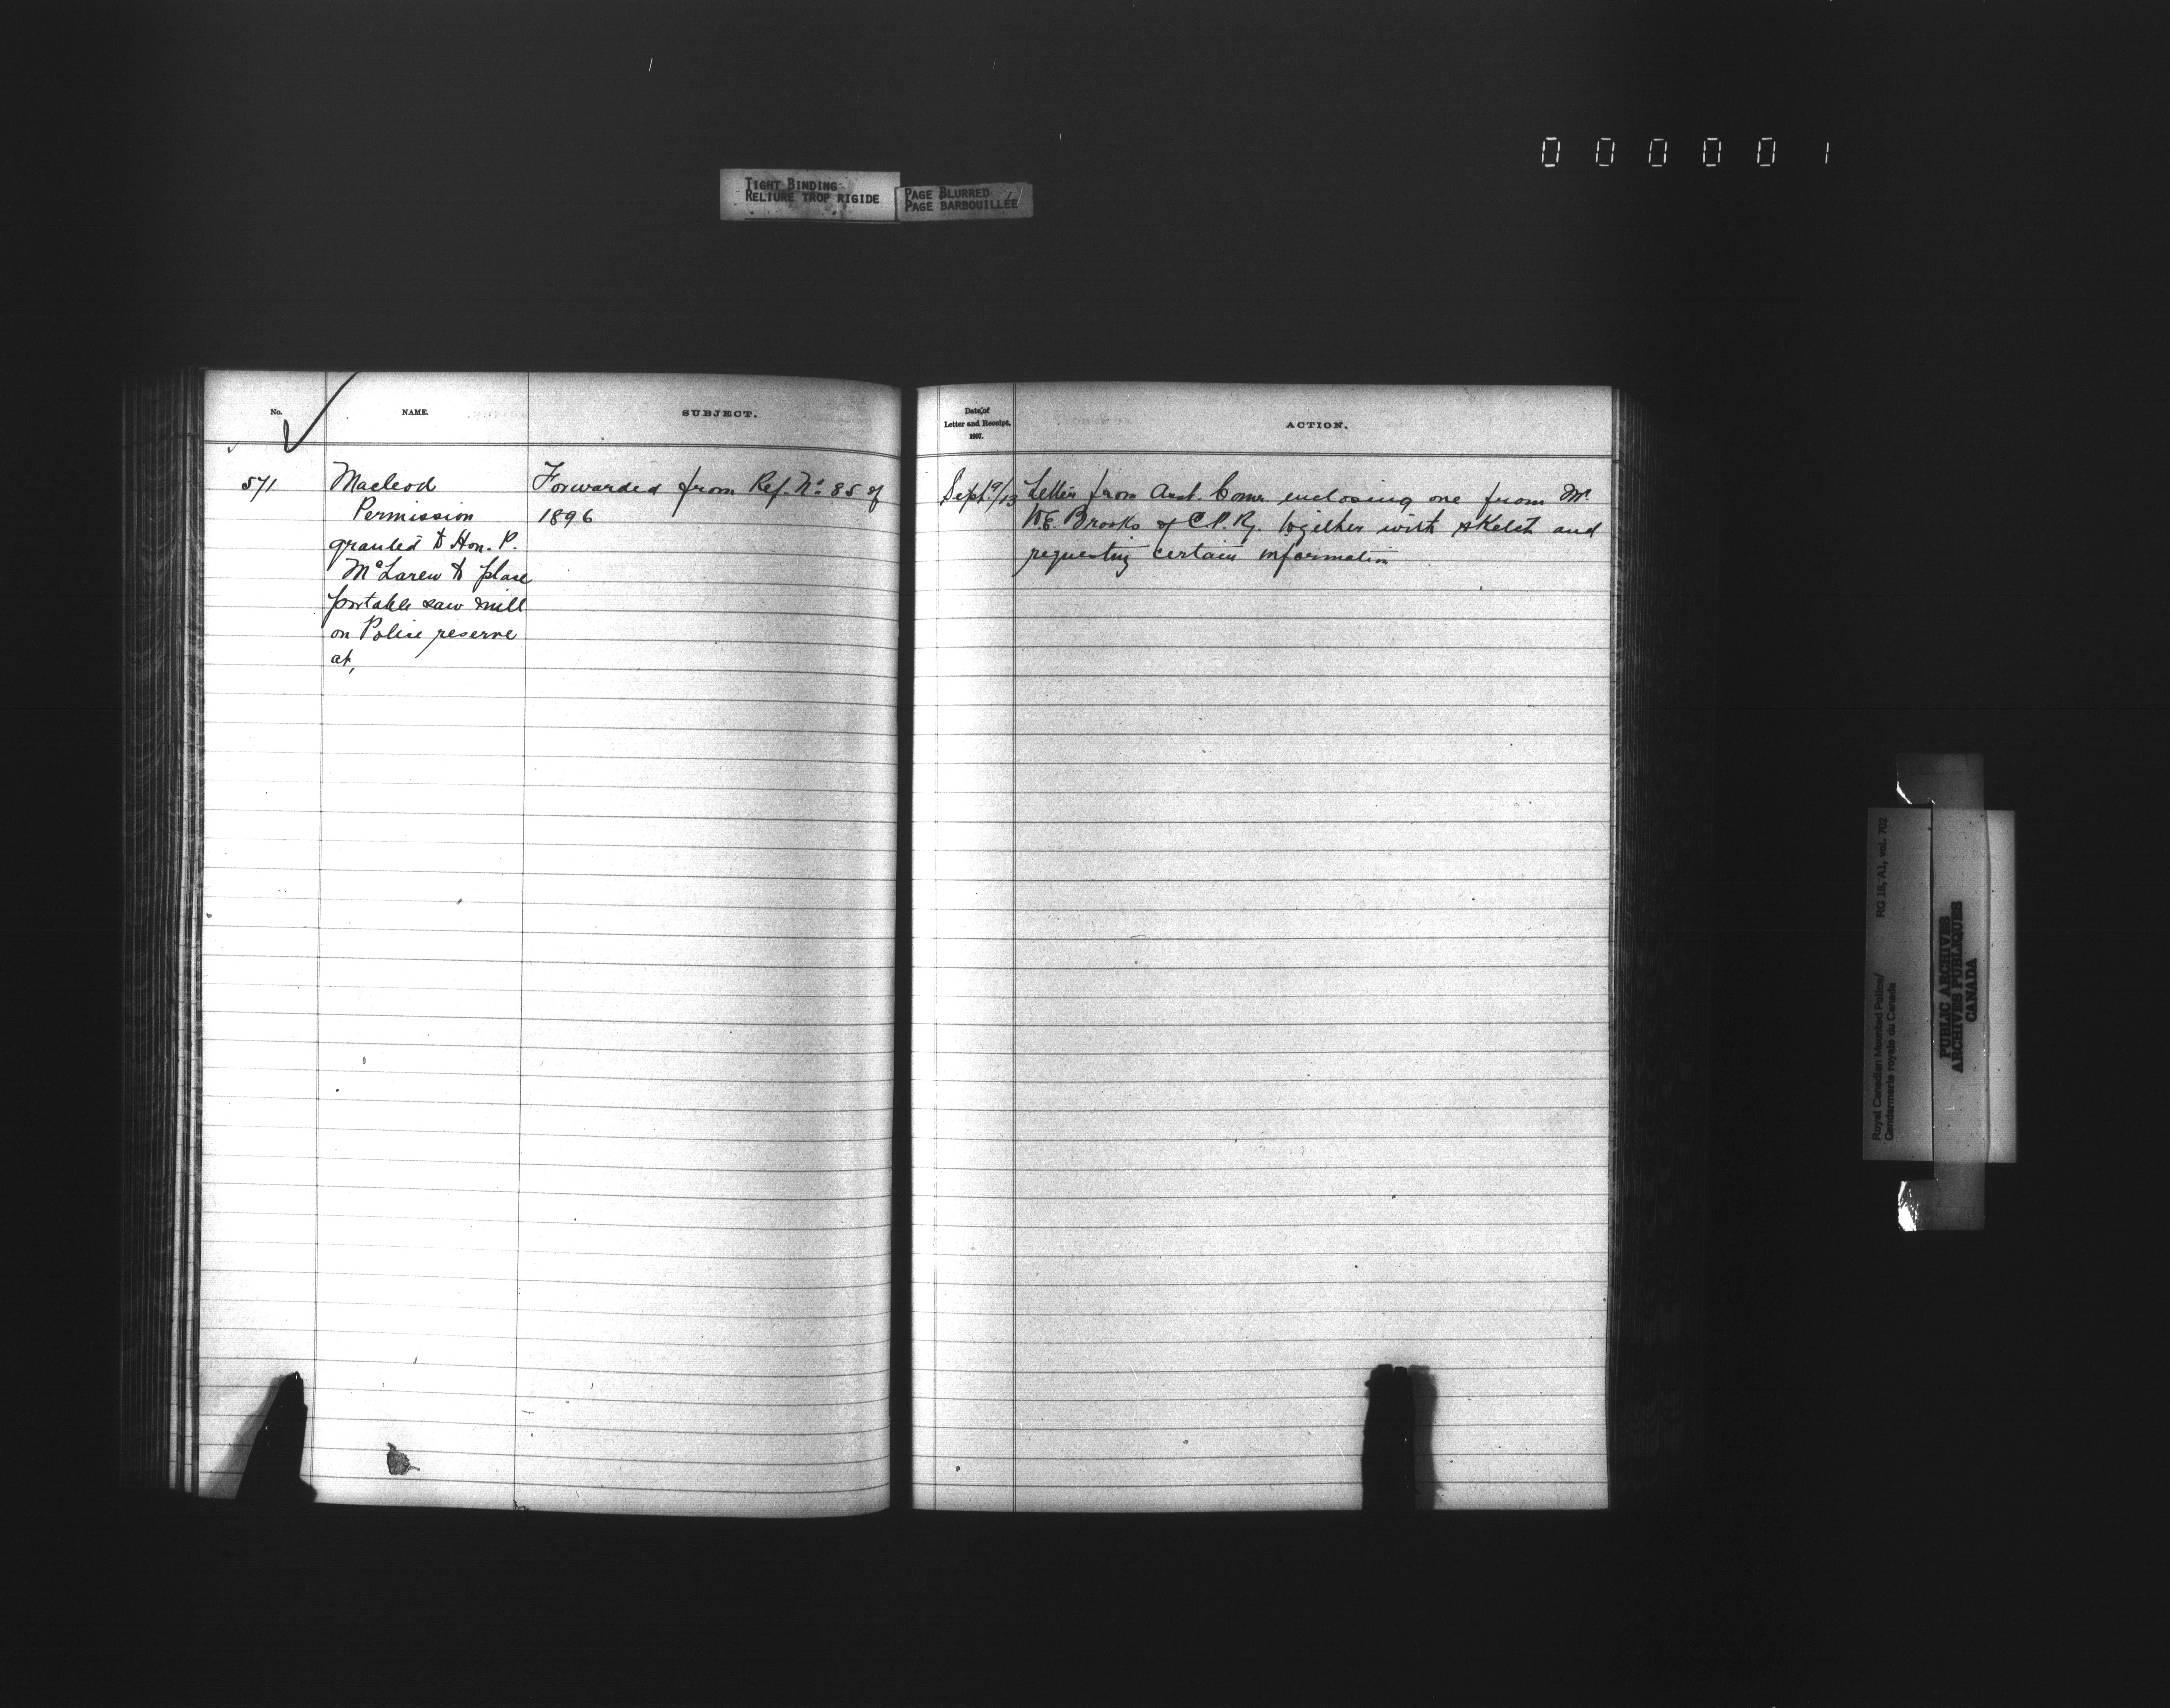 000001
TIGHT BINDING
RELIURE TROP RIGIDE
PAGE BLURRED
PAGE BARBOUILLÉE
No.
NAME.
SUBJECT.
571
Macleod
Permission
granted to Hon. P.
McLaren to place
portable saw mill
on Police reserve
at,
Forwarded from Ref. No. 85 of
1896
Date of
Letter and Receipt,
1897.
ACTION.
Sept. 9/13
Letter from Asst. Comr. enclosing one from Mr.
W.E. Brooks of C.P.Ry. together with sketch and
requesting certain information
Royal Canadian Mounted Police/
Gendarmerie royale du Canada
RG 18, A1, vol. 702
PUBLIC ARCHIVES
ARCHIVES PUBLIQUES
CANADA